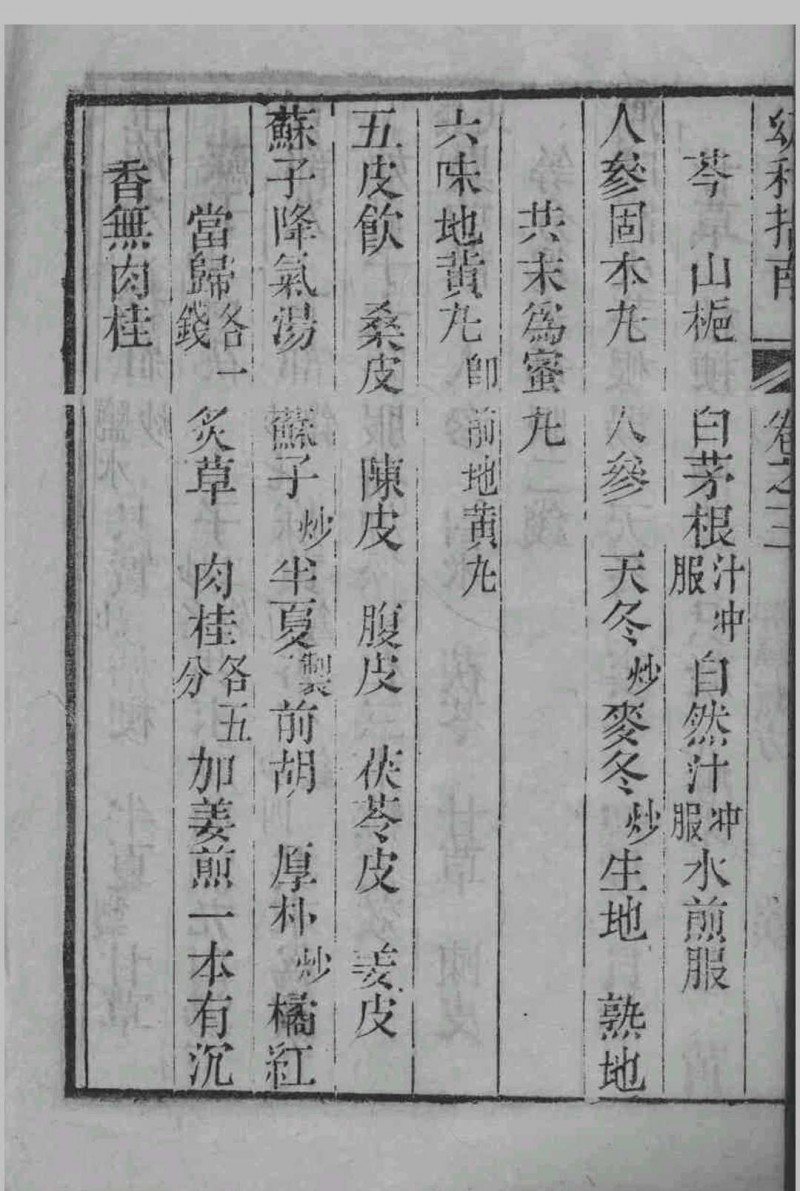 幼科指南 卷之三
芩 山梔 白茅根汁冲服 自然汁冲服 水煎服
人參固本丸 人參 天冬炒 麥冬炒 生地 熟地
共末爲蜜丸
六味地黄丸 卽前地黄丸
五皮飲 桑皮 陳皮 腹皮 茯苓皮 姜皮
蘇子降氣湯 蘇子炒 半夏製 前胡 厚朴炒 橘紅
當歸各一錢 炙草 肉桂各五分 加姜煎一本有沉
香無肉桂